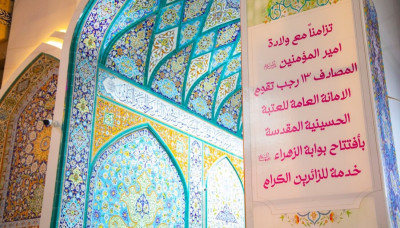 تزامناً مع ولادة
امير المؤمنين
المصادف ١٣ رجب تقوم
الامانة العامة للعتبة
الحسينية المقدسة
بأفتتاح بوابة الزهراء
خدمة للزائرين الكرام